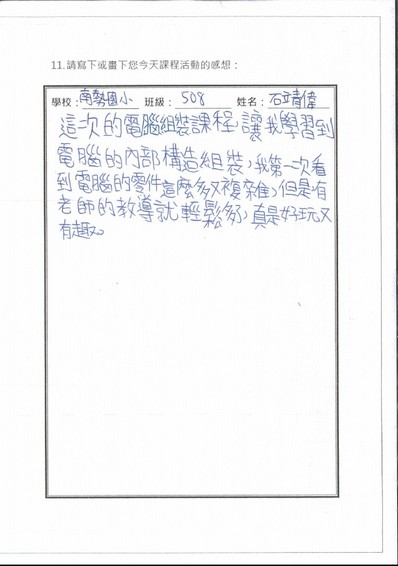 11.請寫下或畫下您今天課程活動的感想：
學校：南勢國小 班級：508 姓名：石靖偉
這次的電腦組裝課程，讓我學習到
電腦的內部構造組裝，我第一次看
到電腦的零件這麼多又複雜，但是有
老師的教導就輕鬆多，真是好玩又
有趣。